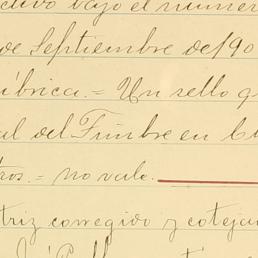 ctivo bajo el numer
de Septiembre de 190
úbrica.= Un sello q
al del Timbre en
tros.= no vale.
triz corregido y coteja